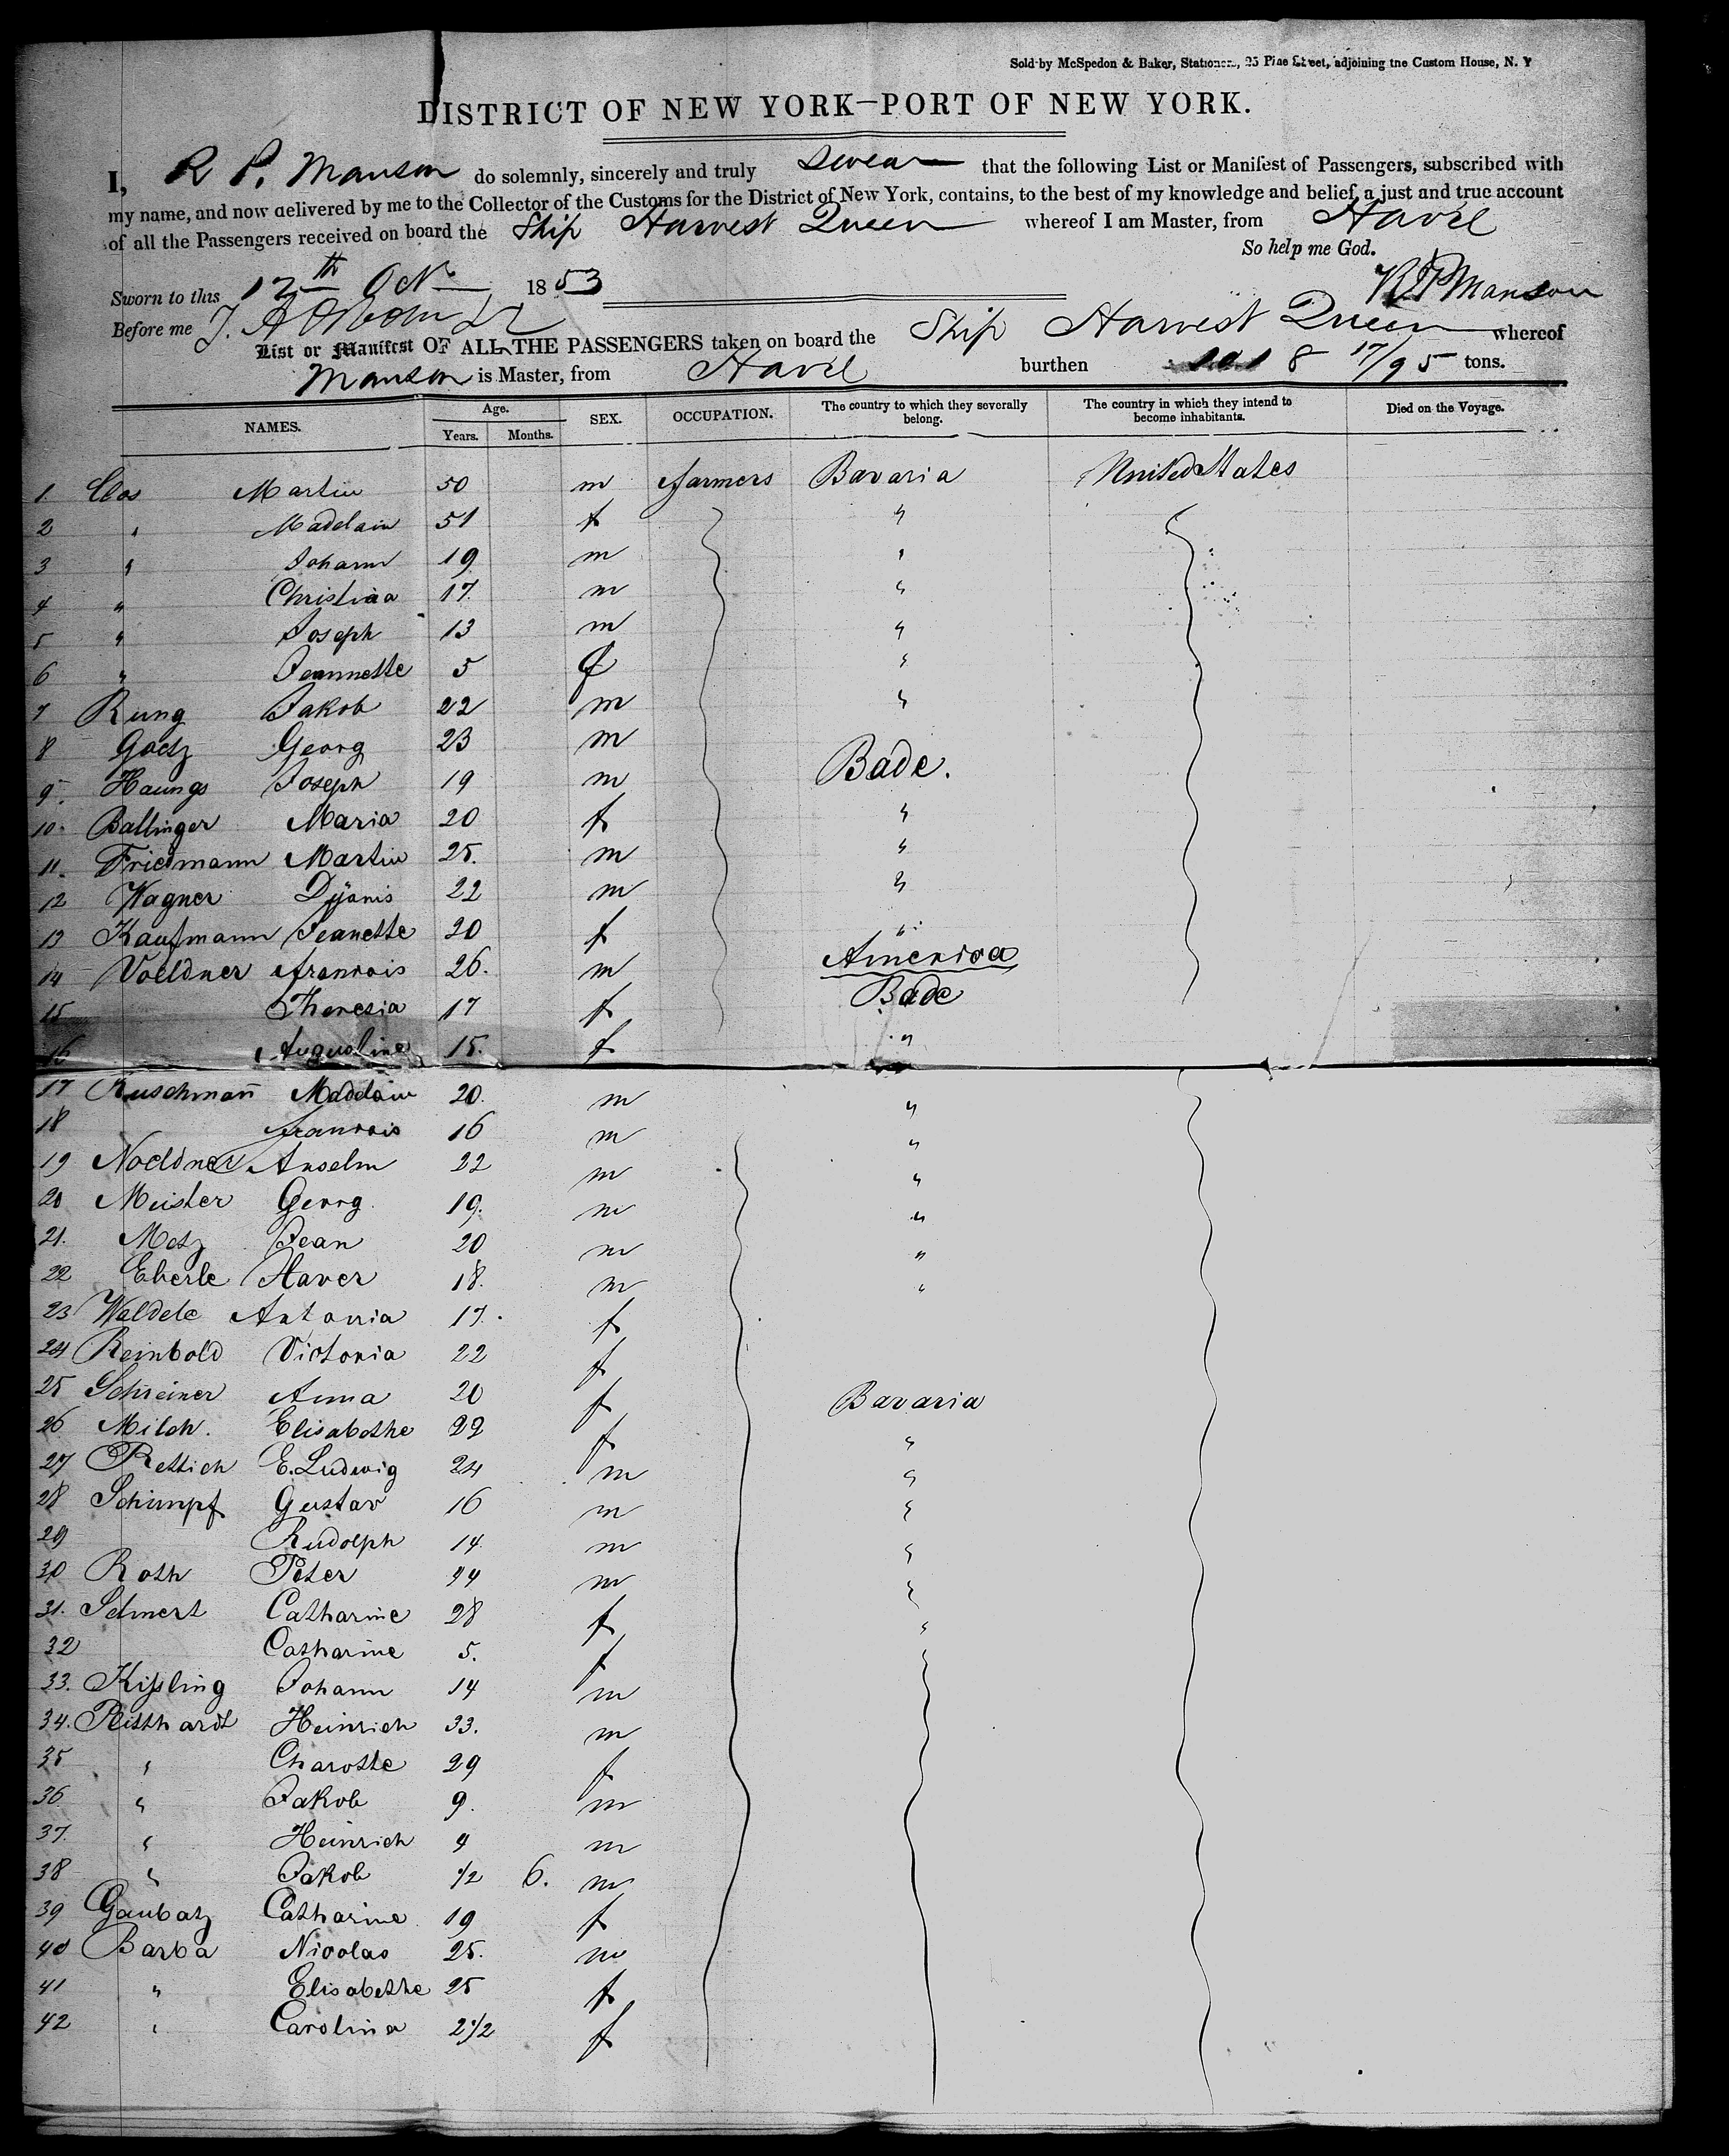 Sold by McSpedon & Baker, Stationers, 25 Pine Street, adjoining the Custom House, N. Y
DISTRICT OF NEW YORK—PORT OF NEW YORK.
I, R P. Manson do solemnly, sincerely and truly Swear that the following List or Manifest of Passengers, subscribed with
my name, and now delivered by me to the Collector of the Customs for the District of New York, contains, to the best of my knowledge and belief, a just and true account
of all the Passengers received on board the Ship Harvest Queen whereof I am Master, from Havre
So help me God.
Sworn to this 12th Oct 1853 R P Manson
Before me
List or Manifest OF ALL THE PASSENGERS taken on board the Ship Harvest Queen whereof
Manson is Master, from Havre burthen 8 17/95 tons.
NAMES. Age. Years. Months. SEX. OCCUPATION. The country to which they severally belong. The country in which they intend to become inhabitants. Died on the Voyage.
1. Clos Martin 50 m farmers Bavaria United States
2 " Madelain 51 f "
3 " Johann 19 m "
4 " Christina 17 m "
5 " Joseph 13 m "
6 " Jeannette 5 f "
7 Rung Jakob 22 m "
8 Goetz Georg 23 m Bade.
9. Haungs Joseph 19 m
10. Ballinger Maria 20 f "
11. Friedmann Martin 25. m "
12 Wagner Dyonis 22 m "
13 Kaufmann Jeanette 20 f "
14 Voeldner francois 26. m America
15 Theresia 17 f Bade
16 Augustine 15. f "
17 Ruschman̄ Madelain 20. m "
18 francois 16 m "
19 Noeldner Anselm 22 m "
20 Meister Georg 19. m "
21. Metz Jean 20 m "
22 Eberle Xaver 18. m "
23 Weldele Antonia 17. f
24 Reinbold Victoria 22 f
25 Schreiner Anna 20 f Bavaria
26 Milch. Elisabethe 22 f "
27 Rettich E. Ludwig 24 m "
28 Schimpf Gustav 16 m "
29 Rudolph 14 m "
30 Roth Peter 44 m "
31. Selmert Catharine 28 f "
32 Catharine 5. f
33. Kißling Johann 14 m
34. Reithardt Heinrich 33. m
35 " Charotte 29 f
36 " Jakob 9. m
37. " Heinrich 4 m
38 " Jakob 1/2 6. m
39 Gaubatz Catharine 19 f
40 Barba Nicolas 25. m
41 " Elisabethe 25 f
42 " Carolina 2 1/2 f